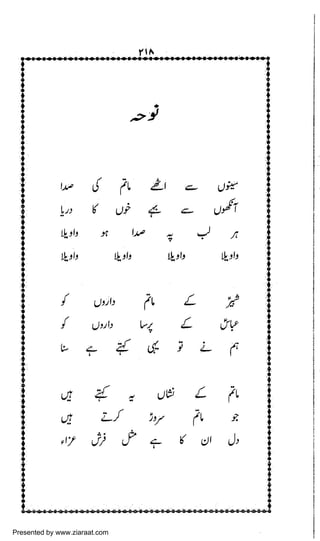 ۲۱۸
نوحہ
سینوں سے اٹھے ماتم کی صدا
آنکھوں سے بہے خوں کا دریا
ہر لب پہ صدا ہو واویلا
واویلا واویلا واویلا واویلا
شبیرؑ کے ماتم داروں کو
عباسؑ کے پرسا داروں کو
ہم نے تو یہی کہتے ہے سنا
ماتم کے نشاں یہ کہتے ہیں
جو ماتم سرورؑ کرتے ہیں
دل ان کا ہے مثل فرش عزاء
Presented by www.ziaraat.com